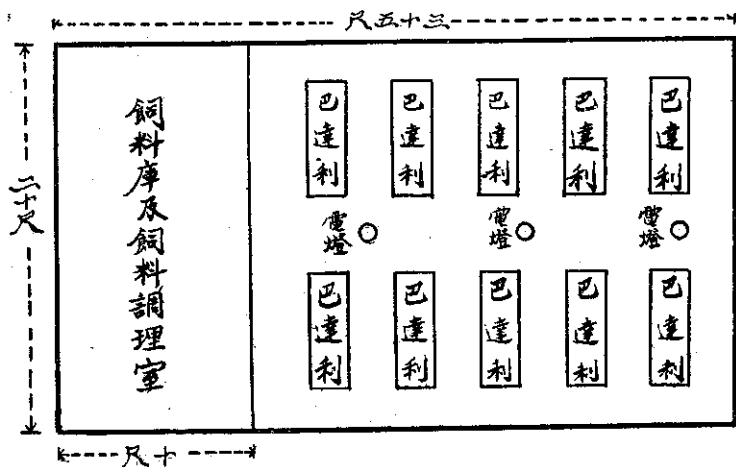 三十五尺
二十尺
飼料庫及飼料調理室
巴達利
巴達利
巴達利
巴達利
巴達利
電燈
電燈
電燈
巴達利
巴達利
巴達利
巴達利
巴達利
十尺